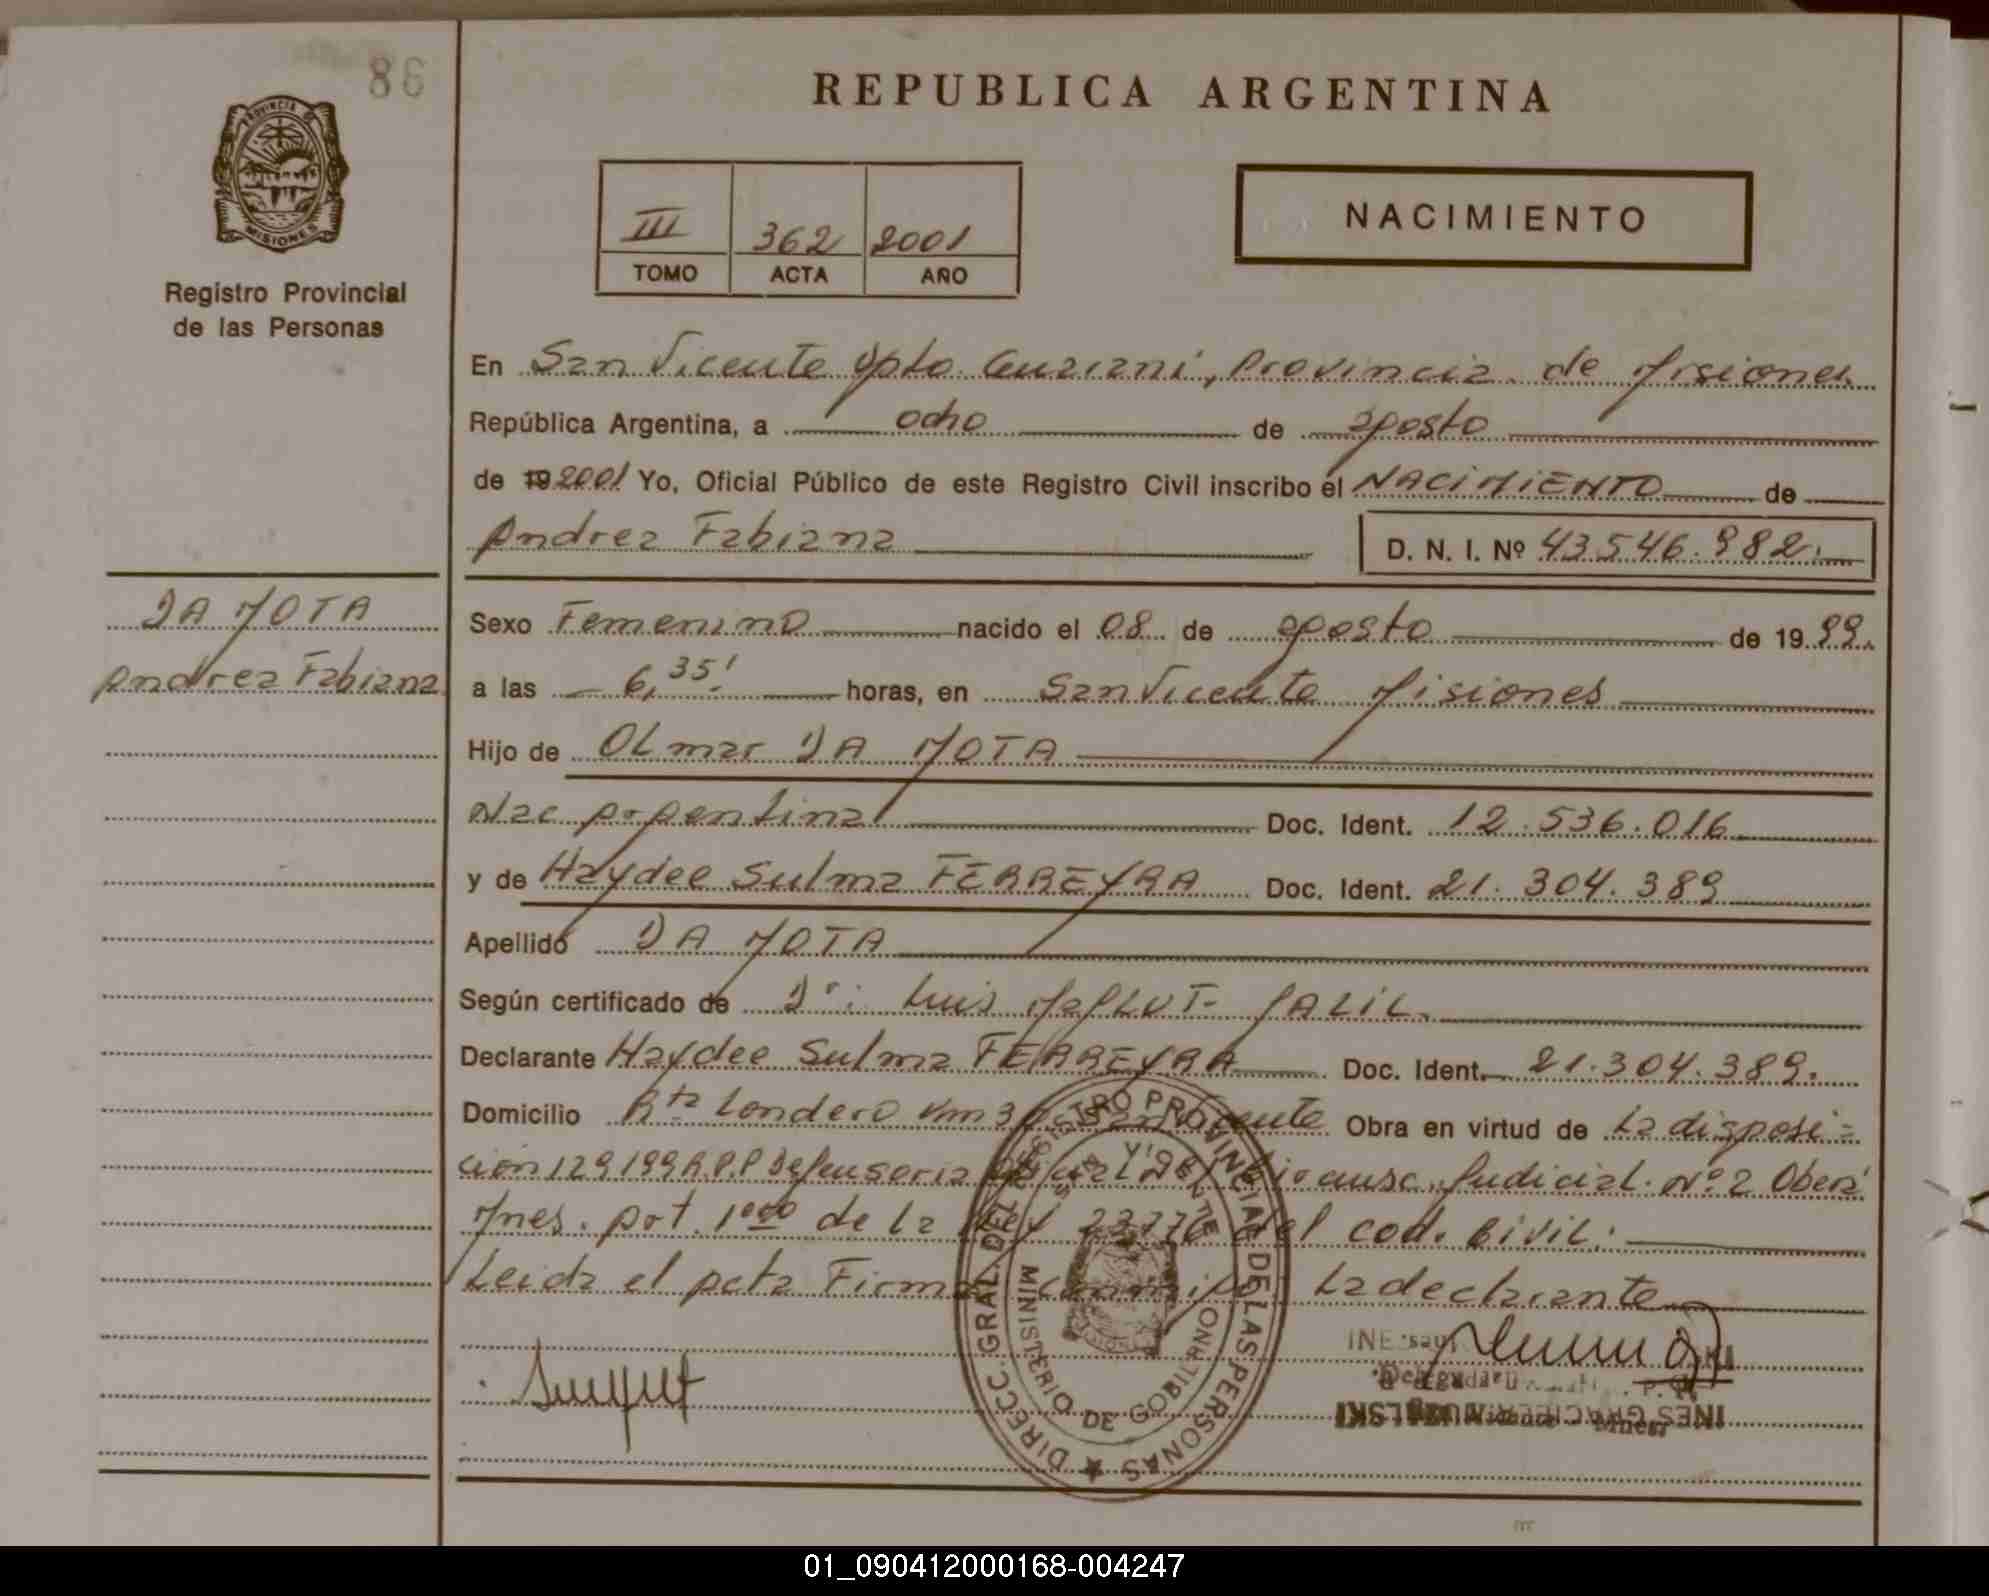 86
REPUBLICA ARGENTINA
PROVINCIA DE MISIONES
Registro Provincial
de las Personas
III 362 2001
TOMO ACTA AÑO
NACIMIENTO
En San Vicente Dpto. Guaraní, Provincia de Misiones
República Argentina, a ocho de agosto
de 19 2001 Yo, Oficial Público de este Registro Civil inscribo el NACIMIENTO de
Andrea Fabiana D. N. I. Nº 43.546.982.
DA MOTA
Andrea Fabiana
Sexo Femenino nacido el 08 de agosto de 19 99.
a las 6,35' horas, en San Vicente Misiones
Hijo de OLmar DA MOTA
Nac Argentina Doc. Ident. 12.536.016
y de Haydee Sulma FERREYRA Doc. Ident. 21.304.389
Apellido DA MOTA
Según certificado de Dr: Luis JALIL.
Declarante Haydee Sulma FERREYRA Doc. Ident. 21.304.389.
Domicilio Rta Londero Km 3 San Vicente Obra en virtud de La disposi-
ción 129/99 R.P.P Defensoria Judicial Nº 2 Oberá
Mnes. Art. 1º de La Ley 23776 del cod. Civil.
Leida el acta Firma conmigo La declarante
DIRECC. GRAL. DEL REGISTRO PROVINCIAL DE LAS PERSONAS
SAN VICENTE
MINISTERIO DE GOBIERNO
01_090412000168-004247